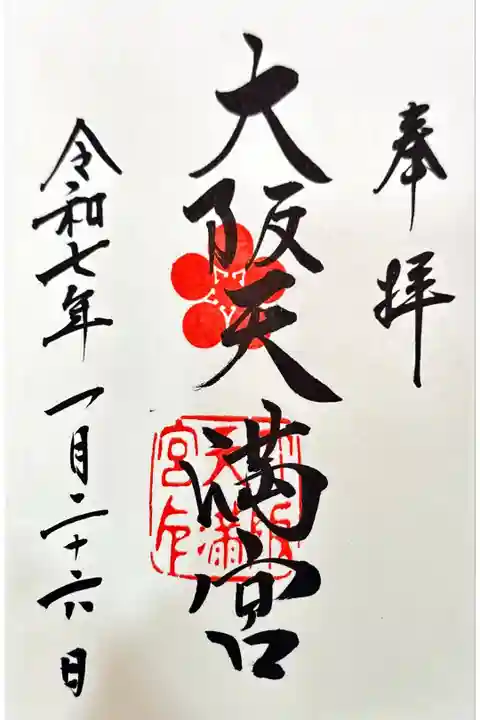 奉拝
大阪天満宮
大阪天満宮印
令和七年一月二十六日